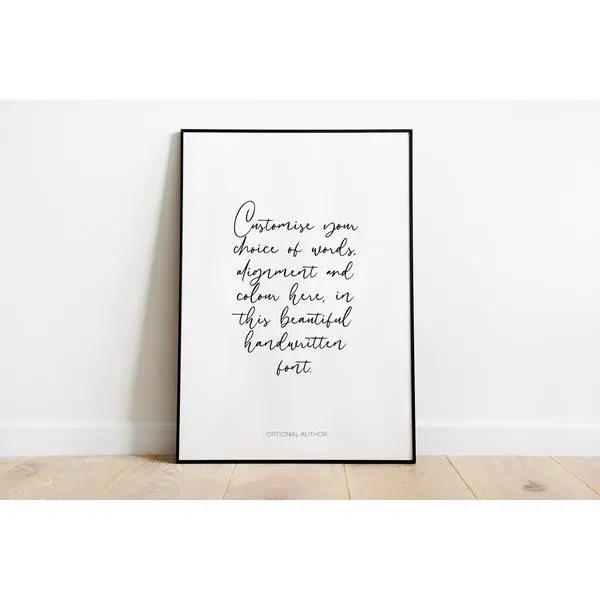 Customise your
choice of words,
alignment and
colour here, in
this beautiful
handwritten
font.
- OPTIONAL AUTHOR